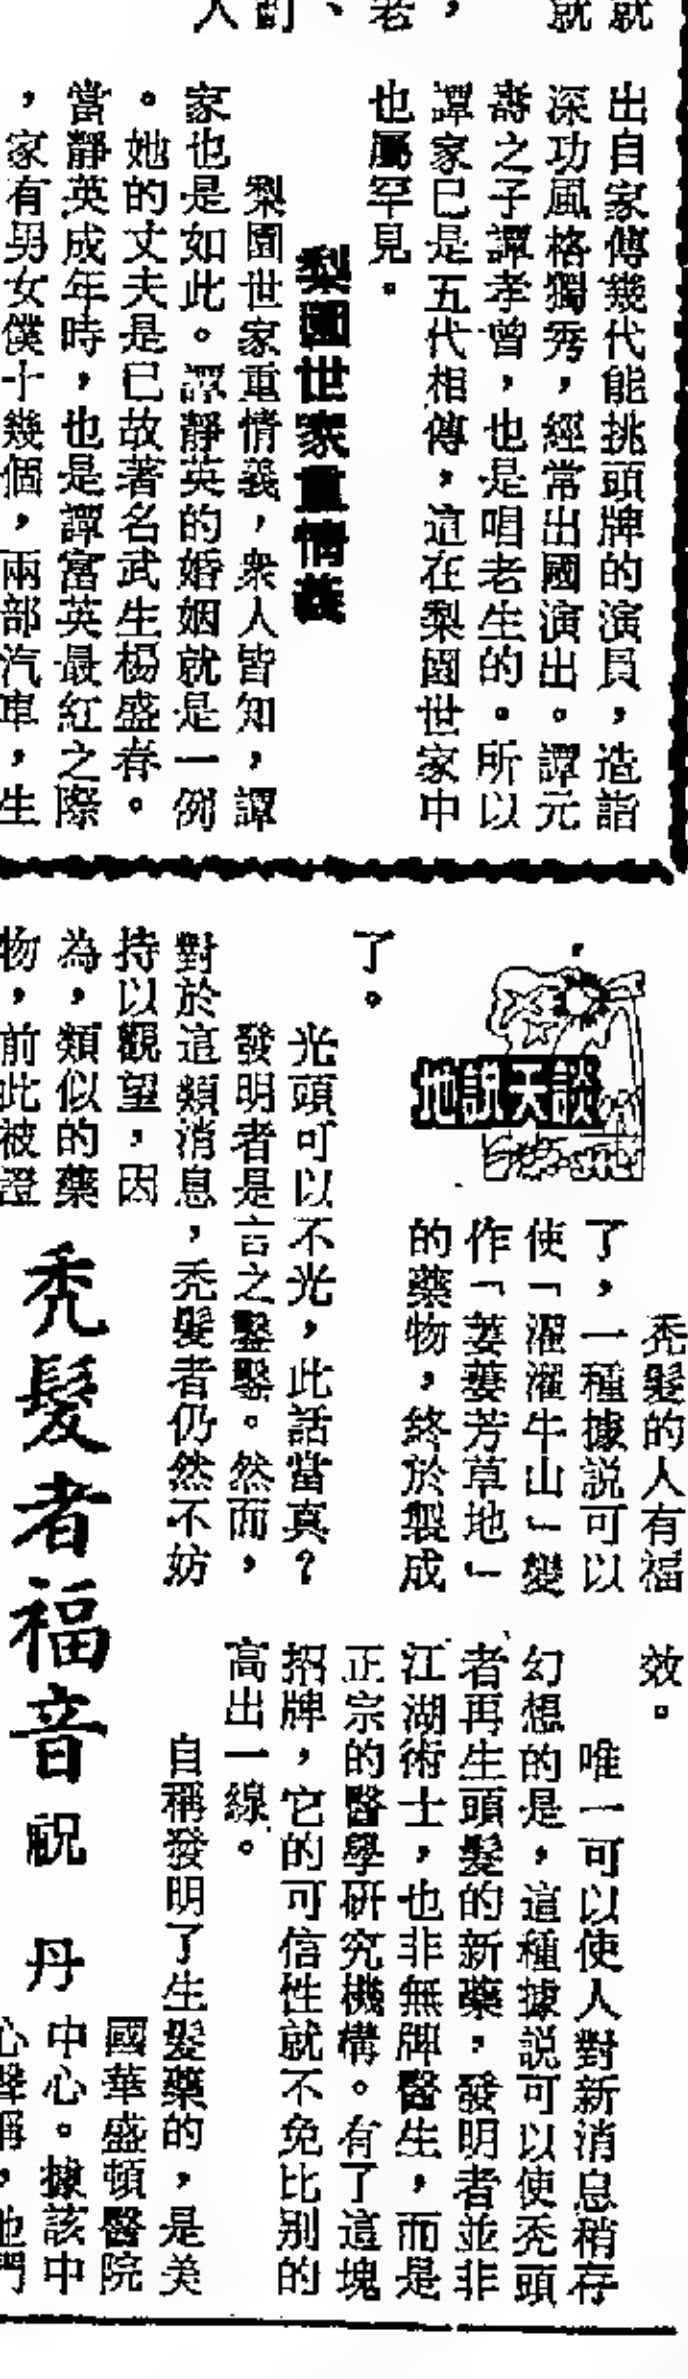 就
就
，
老
、
人
出自家傳幾代能挑頭牌的演員，造詣
深功風格獨秀，經常出國演出。譚元
壽之子譚孝曾，也是唱老生的。所以
譚家已是五代相傳，這在梨園世家中
也屬罕見。
梨園世家重情義
梨園世家重情義，衆人皆知，譚
家也是如此。譚靜英的婚姻就是一例
。她的丈夫是已故著名武生楊盛春。
當靜英成年時，也是譚富英最紅之際
，家有男女僕十幾個，兩部汽車，生
談天說地
禿髮者福音
祝 丹
禿髮的人有福
了，一種據說可以
使「濯濯牛山」變
作「萋萋芳草地」
的藥物，終於製成
了。
光頭可以不光，此話當真？
發明者是言之鑿鑿。然而，
對於這類消息，禿髮者仍然不妨
持以觀望，因
為，類似的藥
物，前此被證
效。
唯一可以使人對新消息稍存
幻想的是，這種據說可以使禿頭
者再生頭髮的新藥，發明者並非
江湖術士，也非無牌醫生，而是
正宗的醫學研究機構。有了這塊
招牌，它的可信性就不免比別的
高出一線。
自稱發明了生髮藥的，是美
國華盛頓醫院
中心。據該中
心聲稱，他們